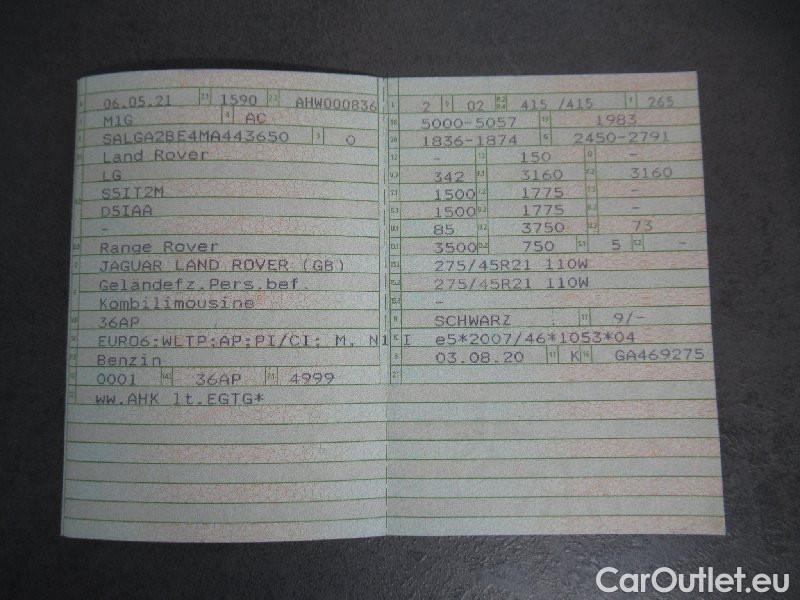 06.05.21 1590 AHW000836
M1G AC
SALGA2BE4MA443650 0
Land Rover
LG
S5IT2M
D5IAA
-
Range Rover
JAGUAR LAND ROVER (GB)
Geländefz.Pers.bef.
Kombilimousine
36AP
EURO6;WLTP;AP;PI/CI; M, N1 I
Benzin
0001 36AP 4999
ww.AHK lt.EGTG*
2 02 415 /415 265
5000-5057 1983
1836-1874 2450-2791
- 150 -
342 3160 3160
1500 1775 -
1500 1775 -
85 3750 73
3500 750 5 -
275/45R21 110W
275/45R21 110W
-
SCHWARZ 9/-
e5*2007/46*1053*04
03.08.20 K GA469275
CarOutlet.eu